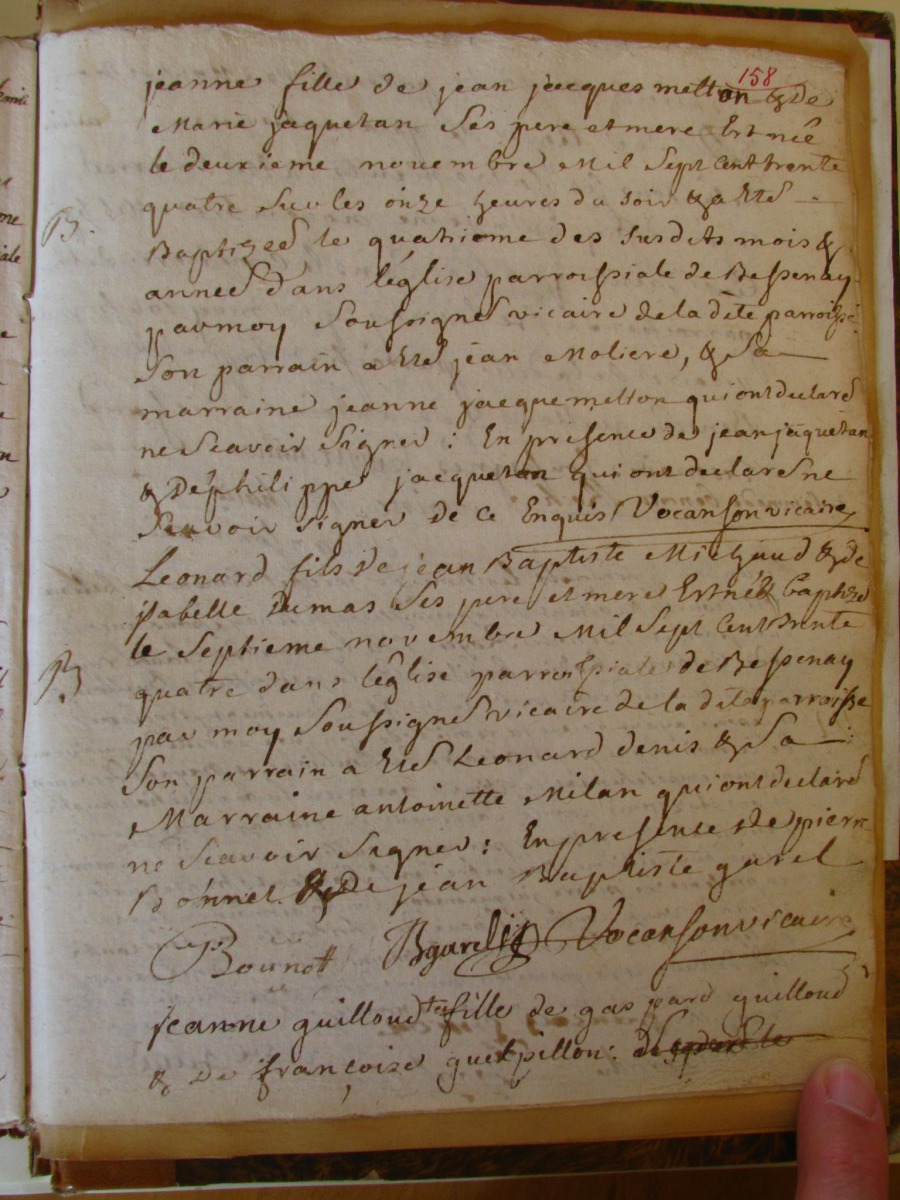 158
jeanne fille de jean jacques metton & de
Marie jaquetan Ses pere et mere Est née
le deuxieme novembre Mil Sept Cent trente
quatre Sur les onze heures du soir & a Eté
B.
Baptizeé le quatrieme des susdits mois &
anneé dans l'église parroissiale de Bessenay
par moy Soussigné vicaire de la dite parroisse
Son parrain a Eté jean Moliere, & Sa
marraine jeanne jacquemetton qui ont declaré
ne Scavoir Signer : En presence de jean jaquetan
& De philippe jacquetan qui ont declaré ne
Scavoir Signer de ce Enquis Vocanson vicaire
Leonard fils de jean Baptiste Michaud & de
ysabelle dumas Ses pere et mere Est né & baptizé
le Septieme novembre Mil Sept Cent trente
B.
quatre dans l'église parroissiale de Bessenay
par moy Soussigné vicaire de la dite parroisse
Son parrain a Eté Leonard denis & Sa
Marraine antoinette Milan qui ont declaré
ne Scavoir Signer : En presence de pierre
Bonnet & de jean Baptiste garel
Vocanson vicaire
jeanne guilloud fille de gaspard guilloud
& De françoise guerpillon :